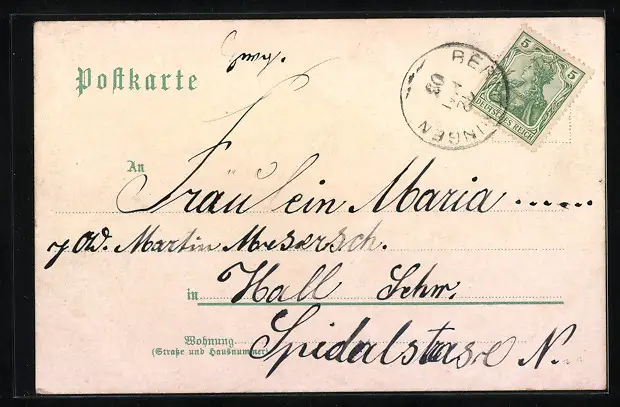 Postkarte
5 5
DEUTSCHES REICH
03
An
Fräulein Maria ......
Martin Messersch.
in Hall Schw.
Wohnung
(Straße und Hausnummer)
Spidalstase N.